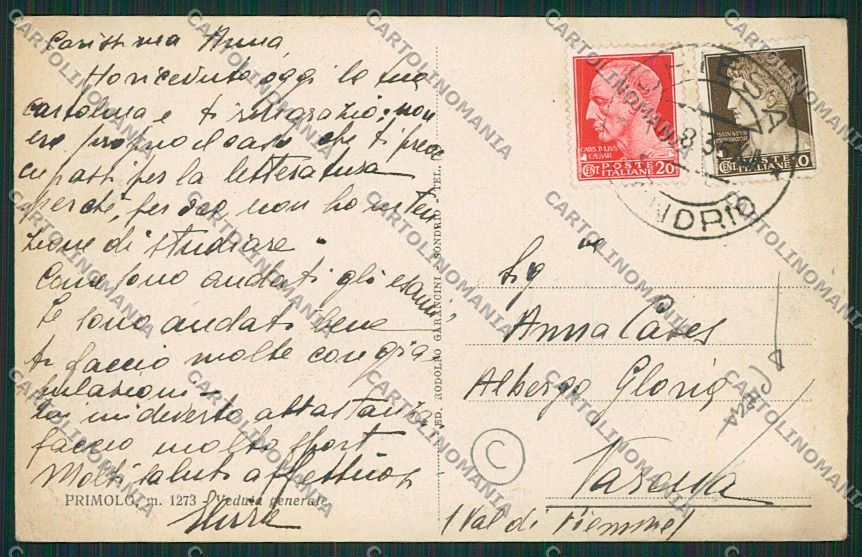 Carissima Anna,
Ho ricevuto oggi la tua
cartolina e ti ringrazio; non
era proprio il caso che ti preoc
cupassi per la letteratura
perché, per ora non ho inten
zione di studiare.
Come sono andati gli esami,
Se sono andati bene
ti faccio molte congra-
tulazioni.
Io mi diverto abbastanza,
faccio molto sport
Molti saluti affettuosi
PRIMOLO, m. 1273 - Veduta generale
ED. RODOLFO GARANCINI - SONDRIO - TEL.
CAIUS IULIUS
CAESAR
CENT POSTE ITALIANE 20
AVGVSTVS
IMPERATOR
CENT POSTE ITALIANE 10
CHIESA
8.35
SONDRIO
Sig.na
Anna
Albergo Gloria
Varena
(Val di Fiemme)
C
CARTOLINOMANIA